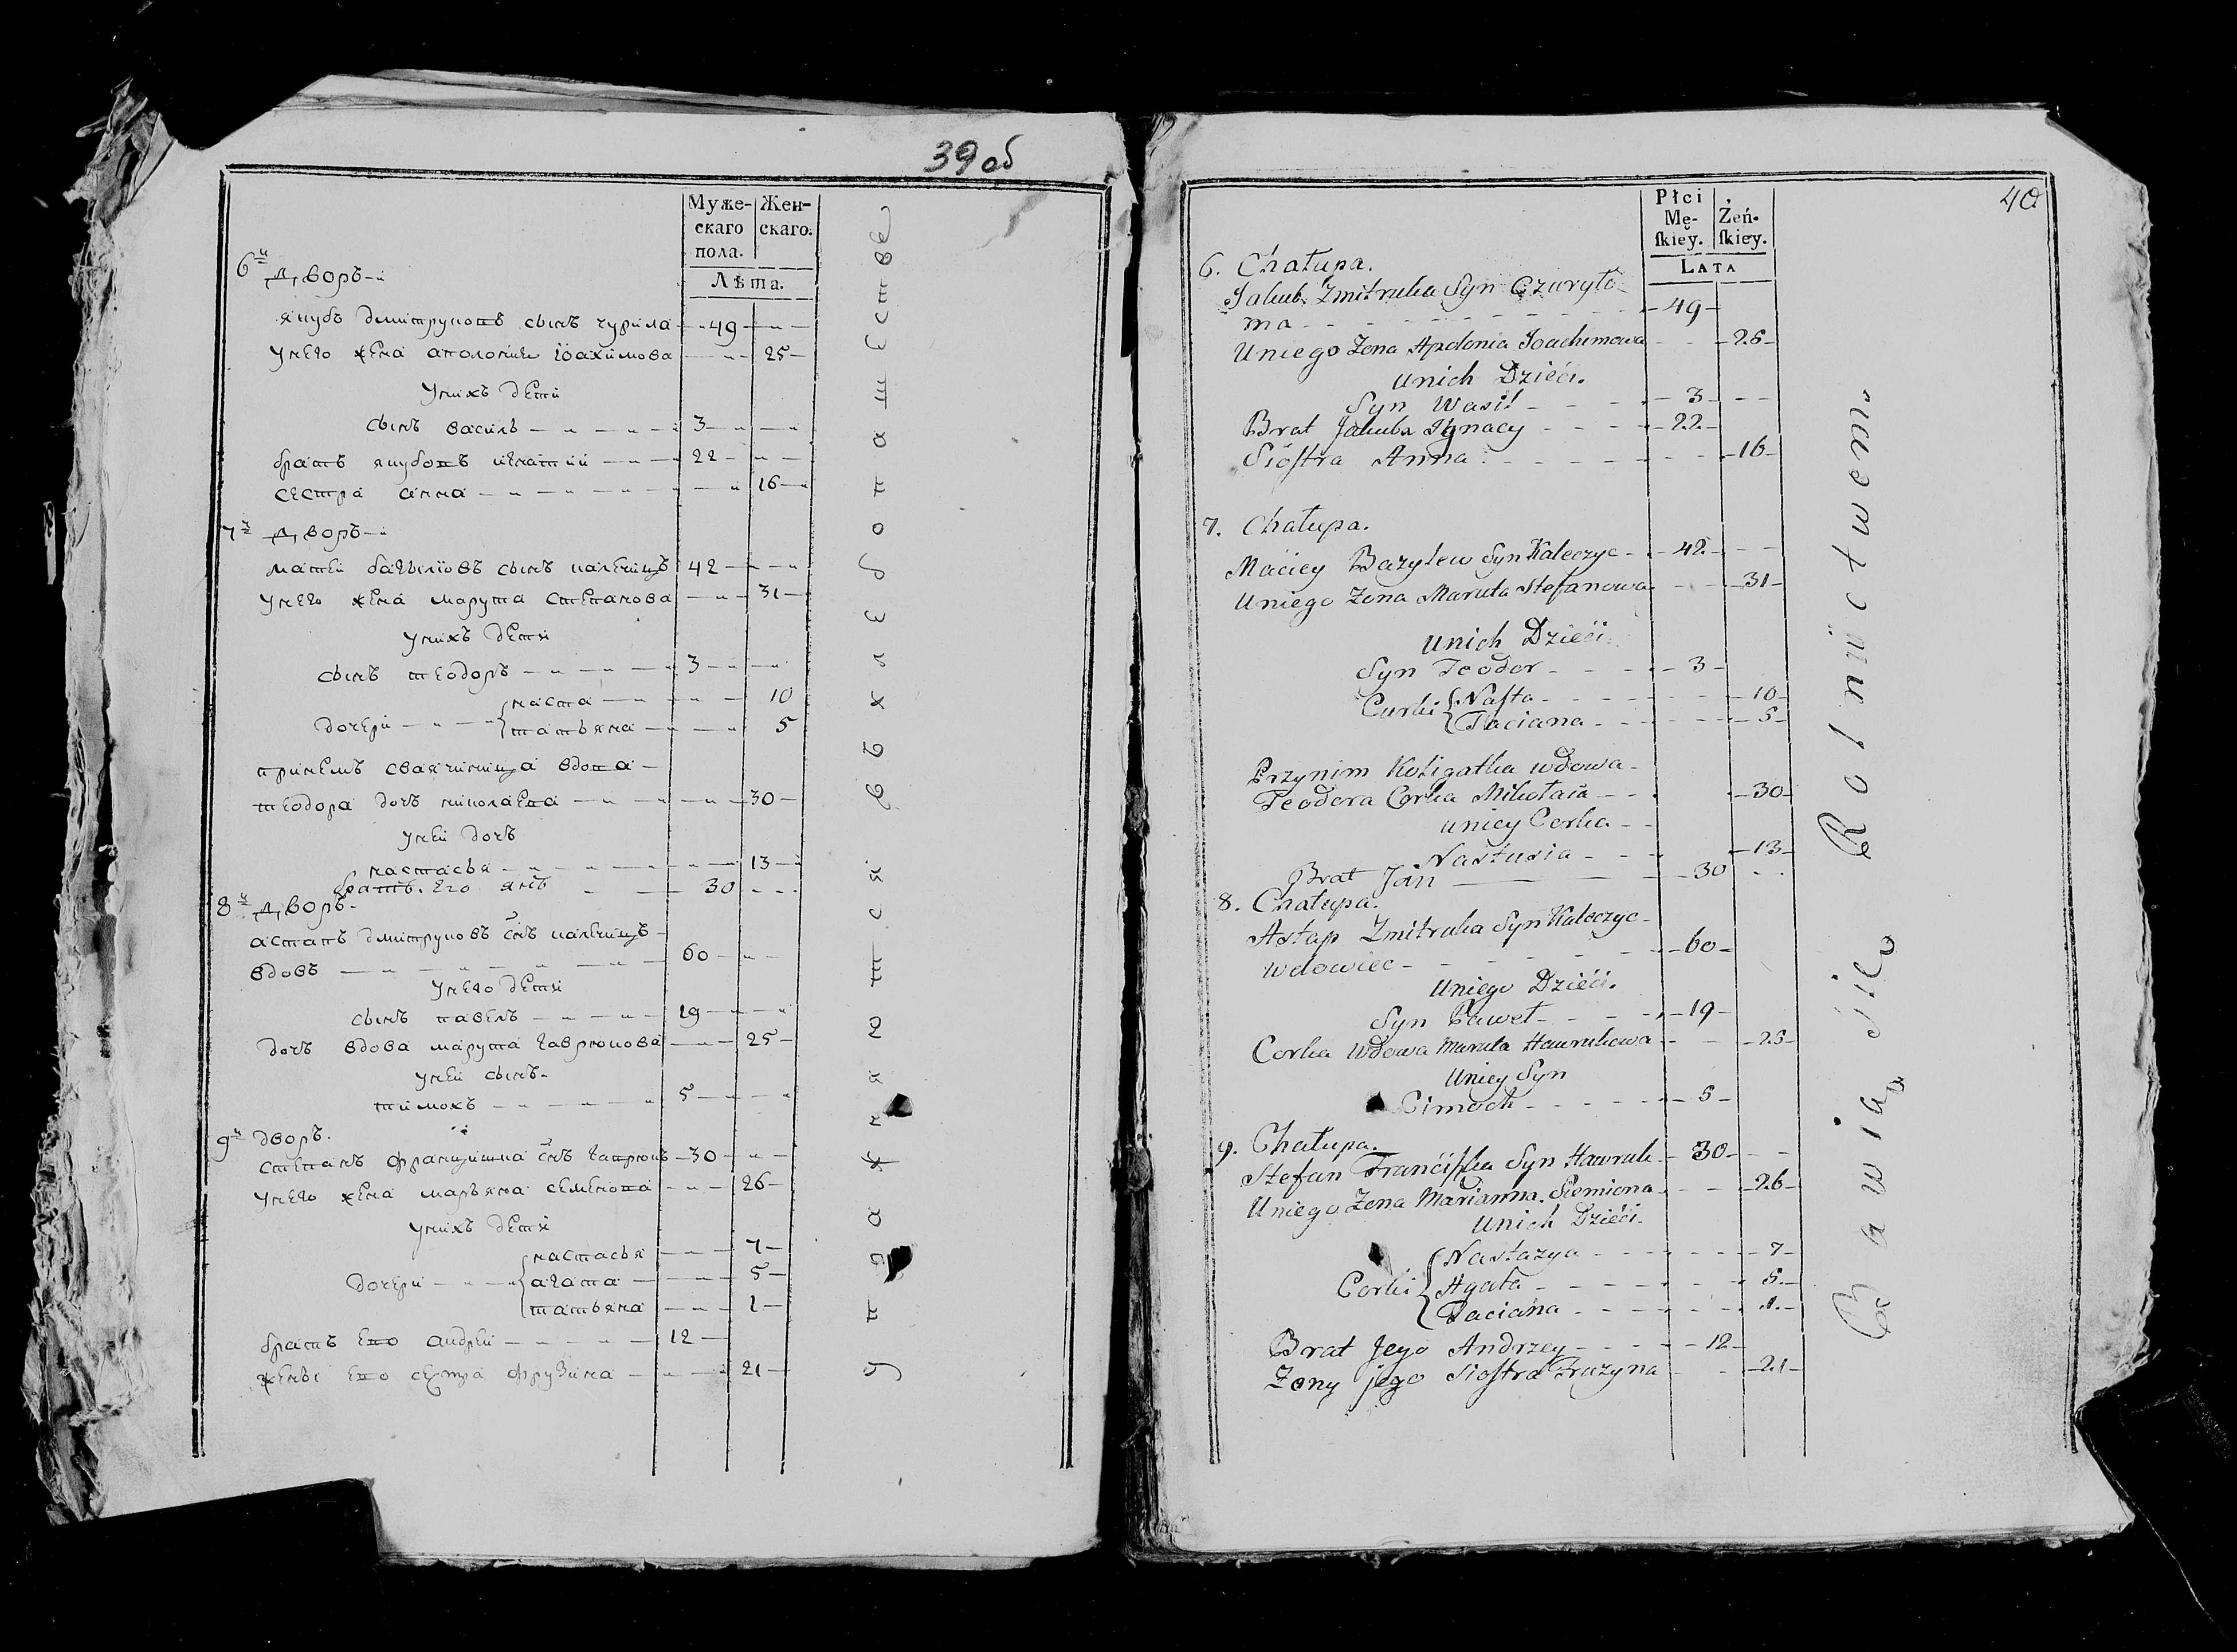 39 об
Муже-
скаго
пола.
Жен-
скаго.
Лѣта.
6й дворъ
якубъ дмитруковъ сынъ чурила 49
унего жена аполония іоахимова 25
унихъ дети
сынъ василь 3
братъ якубовъ игнатий 22
сестра анна 16
7й дворъ
матей базылювъ сынъ калечицъ 42
унего жена марута степанова 31
унихъ дети
сынъ теодоръ 3
наста 10
дочери
татьяна 5
принемъ сваячиница вдова
теодора дочъ николаева 30
уней дочъ
настасья 13
братъ его янъ 30
8й дворъ
астапъ дмитруковъ снъ калечицъ
вдовъ 60
унего дети
сынъ павелъ 19
дочъ вдова марута гаврюкова 25
уней сынъ
тимохъ 5
9й дворъ
степанъ францишка снъ гаврюкъ 30
унего жена марьяна семенова 26
унихъ дети
настасья 7
дочери агата 5
татьяна 1
братъ его андрей 12
жены его сестра фрузина 21
упражняются въ хлебопашестве
40
Płci
Mę-
ſkiey.
Żeń-
ſkiey.
LATA
6. Chałupa.
Jakub Zmitruka Syn Czuryło
ma 49
Uniego Zona Apolonia Joachimowa 25
Unich Dzieći.
Syn Wasil 3
Brat Jakuba Ignacy 22
Siostra Anna 16
7. Chałupa.
Maciey Bazylew Syn Kaleczyc 42
Uniego Zona Maruta Stefanowa 31
Unich Dzieći.
Syn Teodor 3
Curki Nasta 10
Taciana 5
Przynim Koligatka wdowa
Teodora Corka Mikołaia 30
Uniey Corka
Nastusia 13
Brat Jan 30
8. Chałupa.
Astap Zmitruka Syn Kaleczyc
wdowiec 60
Uniego Dzieći.
Syn Paweł 19
Corka Wdowa Maruta Hawrukowa 25
Uniey Syn
Cimoch 5
9. Chałupa.
Stefan Franciszka Syn Hawruk 30
Uniego Zona Marianna Siemiona 26
Unich Dzieći.
Nastazya 7
Corki Agata 5
Taciana 1
Brat Jego Andrzey 12
Zony jego Siostra Fruzyna 21
Bawią się Rolnictwem.